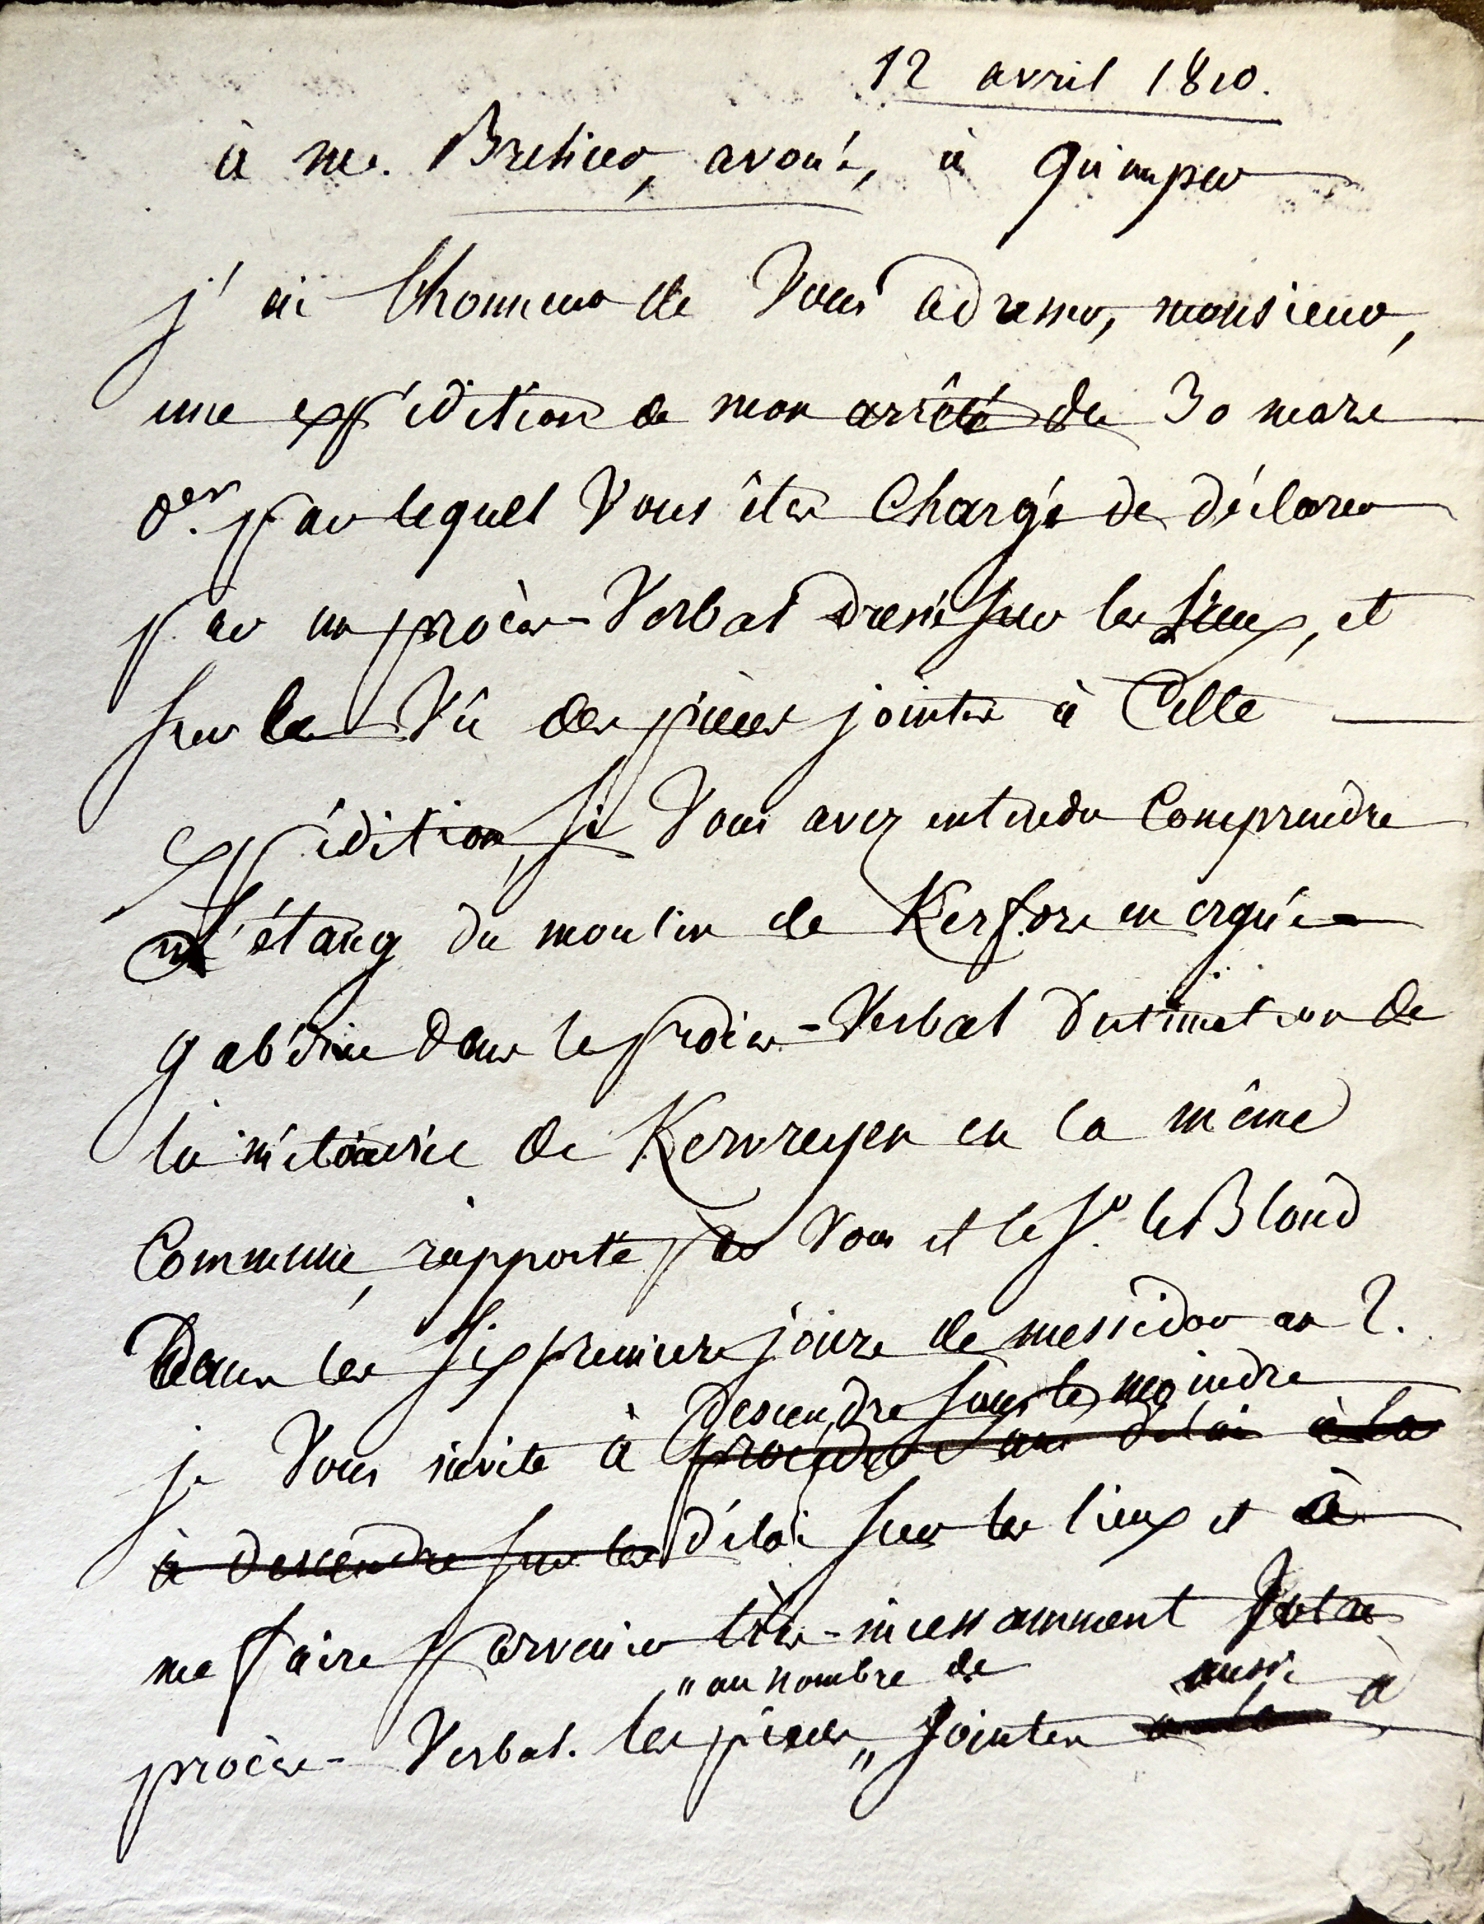 12 avril 1810.
à Me. Bretier, avoué, à Quimper
j'ai l'honneur de Vous adresser, monsieur,
une expédition de mon arrêté du 30 mars
der. par lequel Vous êtes Chargé de déclarer
par un procès-Verbal dressé sur les lieux, et
sur le Vû des pièces jointes à Cette
expédition, si Vous avez entendu Comprendre
l'étang du moulin de Kerfors en ergué
gabéric dans le procès-Verbal d'estimation de
la métairie de Kervreyen en la même
Commune, rapporté par Vous et le Sr. le Bloud
Dans les six premiers jours de messidor an 2.
Descendre sans le moindre
je Vous invite à procéder sans délai à la
à descendre sur les délai sur les lieux et à
me faire parvenir très-incessamment Votre
"au nombre de aussi à
procès-Verbal. les pièces " Jointes